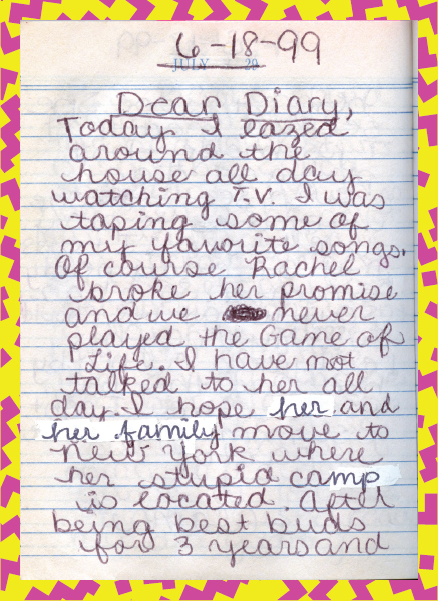 6-18-99
JULY 20
Dear Diary,
Today I lazed
around the
house all day
watching T.V. I was
taping some of
my favorite songs.
Of course Rachel
broke her promise
and we never
played the Game of
Life. I have not
talked to her all
day. I hope her and
her family move to
New York where
her stupid camp
is located. After
being best buds
for 3 years and